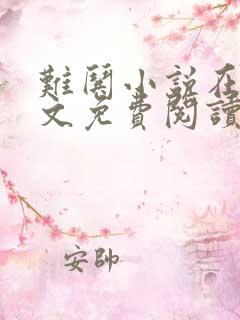 難鬩小説在
文免費閱讀
安帥